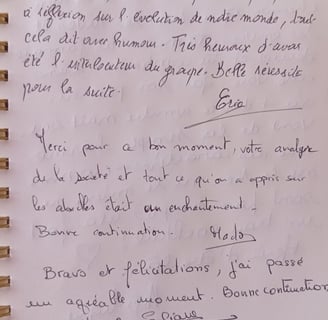 à réflexion sur l'évolution de notre monde, tout
cela dit avec humour. Très heureux d'avoir
été l'interlocuteur du groupe. Belle réussite
pour la suite.
Eric
Merci pour ce bon moment, votre analyse
de la société et tout ce qu'on a appris sur
les abeilles était un enchantement.
Bonne continuation.
Bravo et félicitations, j'ai passé
un agréable moment. Bonne continuation